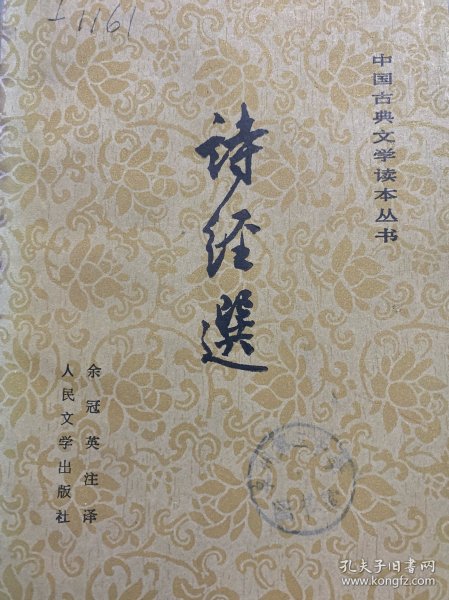 I 1161
中国古典文学读本丛书
詩经選
余冠英注译
人民文学出版社
孔夫子旧书网
www.kongfz.com